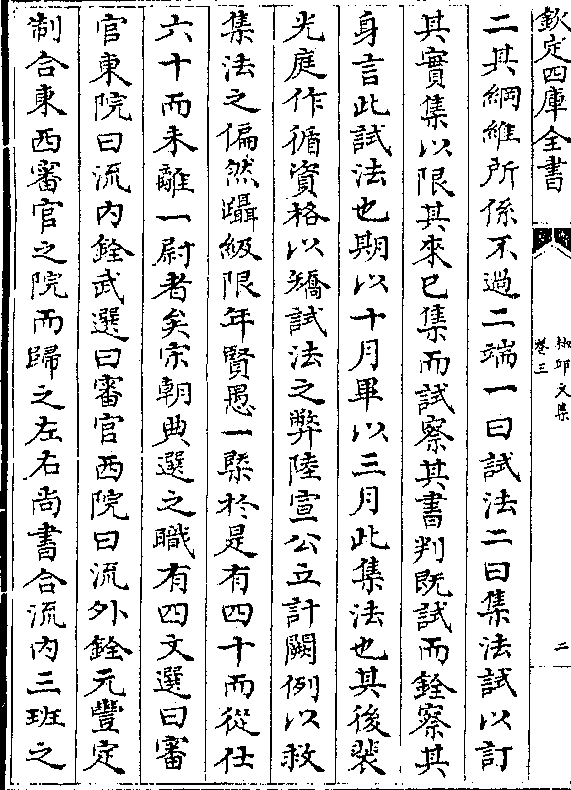 欽定四庫全書
柳邱文集
卷三
二
二其綱維所係不過二端一曰試法二曰集法試以訂
其實集以限其來已集而試察其書判既試而銓察其
身言此試法也期以十月畢以三月此集法也其後裴
光庭作循資格以矯試法之弊陸宣公立計闕例以救
集法之偏然躡級限年賢愚一槩於是有四十而從仕
六十而未離一尉者矣宋朝典選之職有四文選曰審
官東院曰流内銓武選曰審官西院曰流外銓元豐定
制合東西審官之院而歸之左右尚書合流内三班之